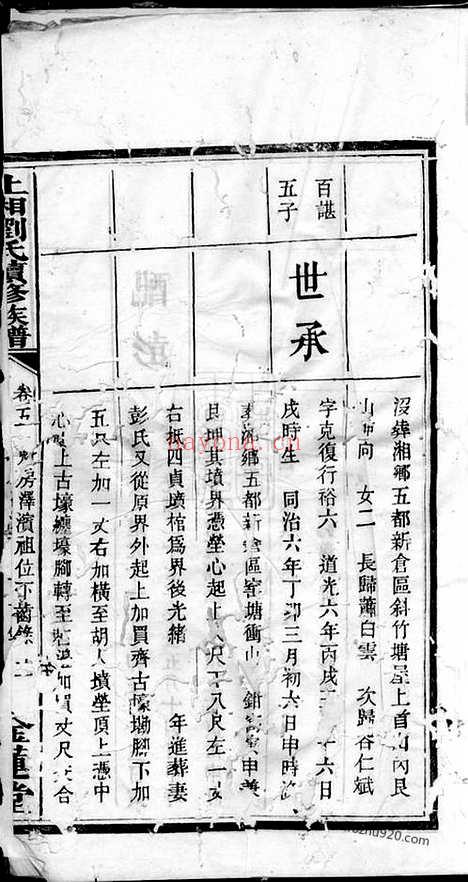 百諶
五子
世承
沒葬湘鄉五都新倉區斜竹塘屋上首 內艮
山 向 女二 長歸蕭白雲 次歸谷仁斌
字克復行裕六 道光六年丙戌 十六日
戌時生 同治六年丁卯三月初六日申時
鄉五都新倉區窰塘衝山 申
其墳界憑塋心起上 尺下八尺左一丈
右抵四貞墳棺爲界後光緒 年進葬妻
彭氏又從原界外起上加買齊古壕塝腳下加
五尺左加一丈右加橫至胡人墳塋頂上憑中
心 上古壕纏壕腳轉至 加買丈尺 合
上湘劉氏續修族譜
卷五 房澤濱祖位下齒錄
金蓮堂
hayona.cn
zhu920.com